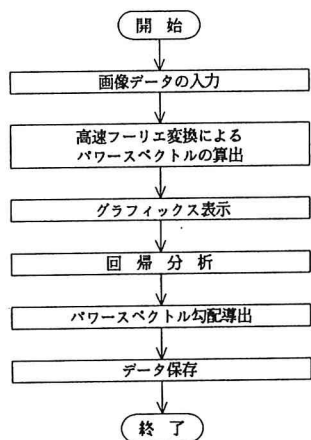 開 始
画像データの入力
高速フーリエ変換による
パワースペクトルの算出
グラフィックス表示
回 帰 分 析
パワースペクトル勾配導出
データ保存
終 了